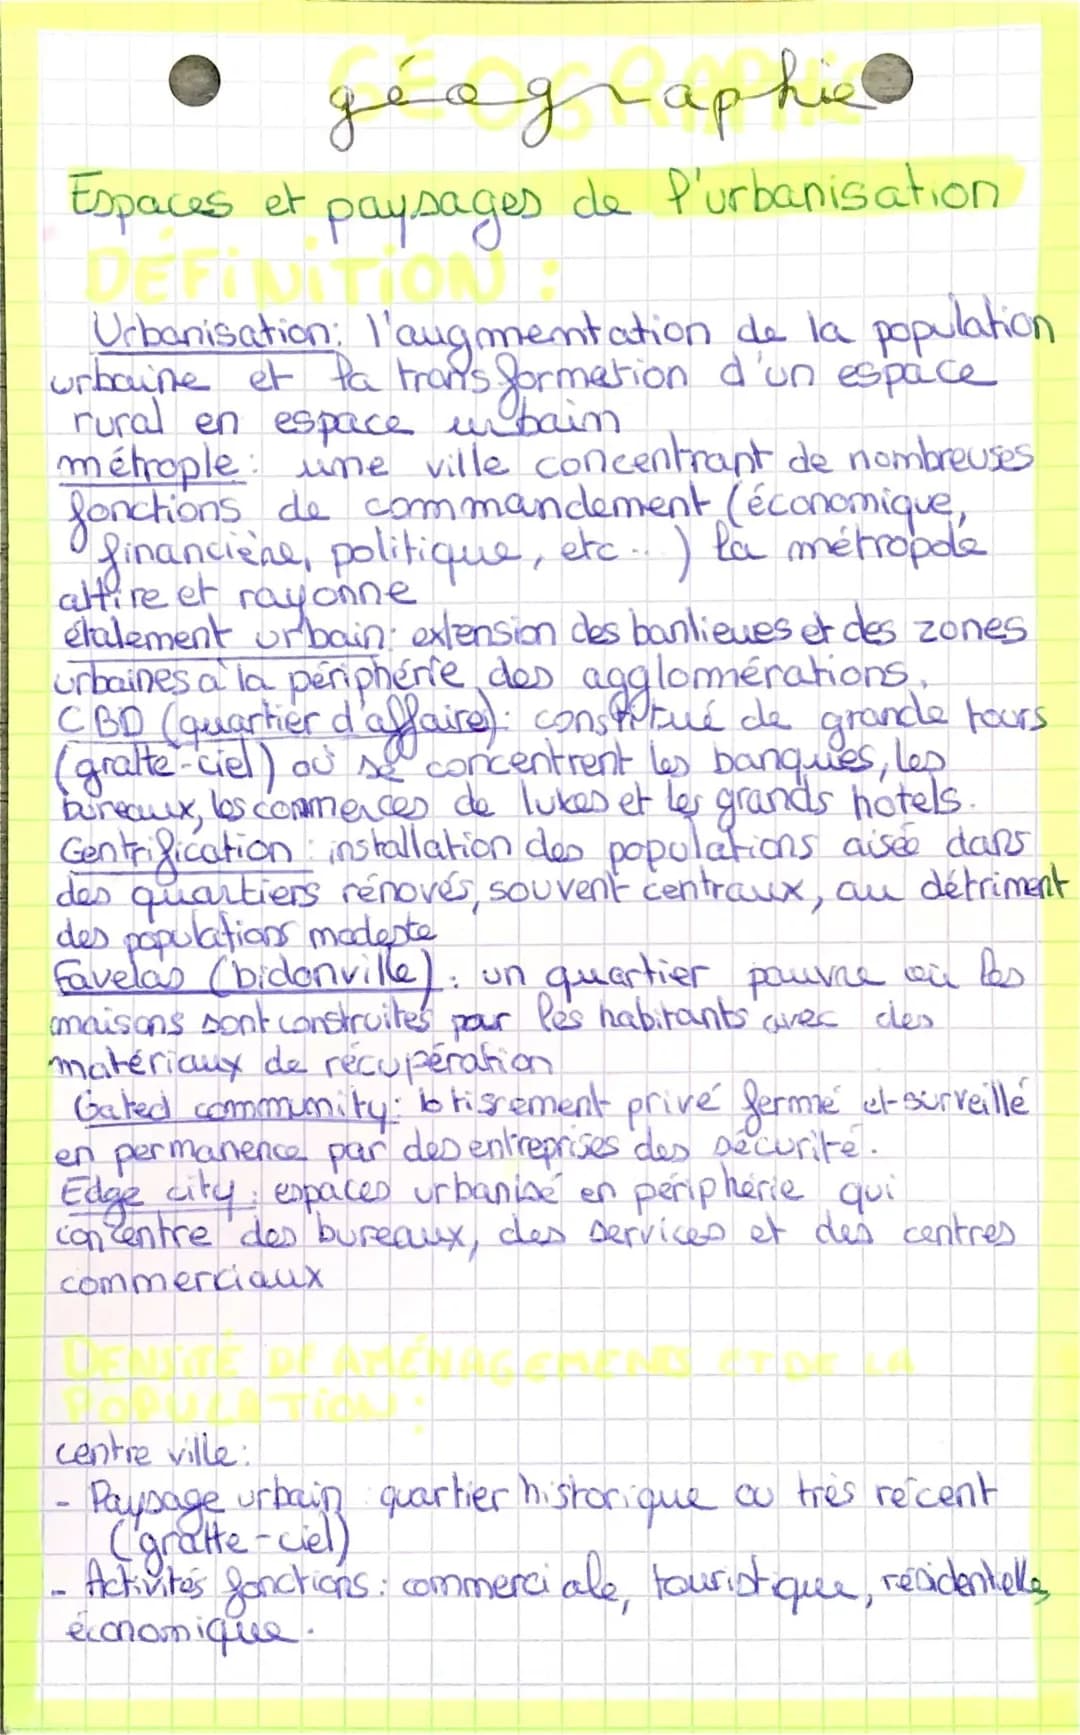 GÉOGRAPHIE
géographie
Espaces et paysages de l'urbanisation
DÉFINITION :
Urbanisation: l'augmentation de la population
urbaine et la transformation d'un espace
rural en espace urbain
métrople: une ville concentrant de nombreuses
fonctions de commandement (économique,
financière, politique, etc...) la métropole
attire et rayonne
étalement urbain: extension des banlieues et des zones
urbaines à la périphérie des agglomérations.
CBD (quartier d'affaire): constitué de grande tours
(gratte-ciel) où se concentrent les banques, les
bureaux, les commerces de lukes et les grands hotels.
Gentrification : installation des populations aisée dans
des quartiers rénovés, souvent centraux, au détriment
des populations modeste
Favelas (bidonville) : un quartier pauvre où les
maisons sont construites par les habitants avec des
matériaux de récupération
Gated community: lotissement privé fermé et surveillé
en permanence par des entreprises des sécurité.
Edge city : espaces urbanisé en périphérie qui
concentre des bureaux, des services et des centres
commerciaux
DENSITÉ DE AMÉNAGEMENTS ET DE LA
POPULATION :
centre ville:
- Paysage urbain quartier historique ou très récent
(gratte-ciel)
- Activités fonctions : commerciale, touristique, résidentelle,
économique.